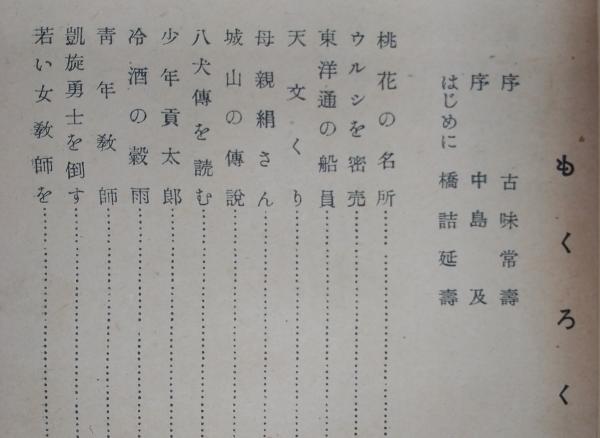 もくろく
序 古味常壽
序 中島及
はじめに 橋詰延壽
桃花の名所
ウルシを密売
東洋通の船員
天文くり
母親絹さん
城山の傳說
八犬傳を読む
少年貢太郎
冷酒の穀雨
靑年敎師
凱旋勇士を倒す
若い女敎師を